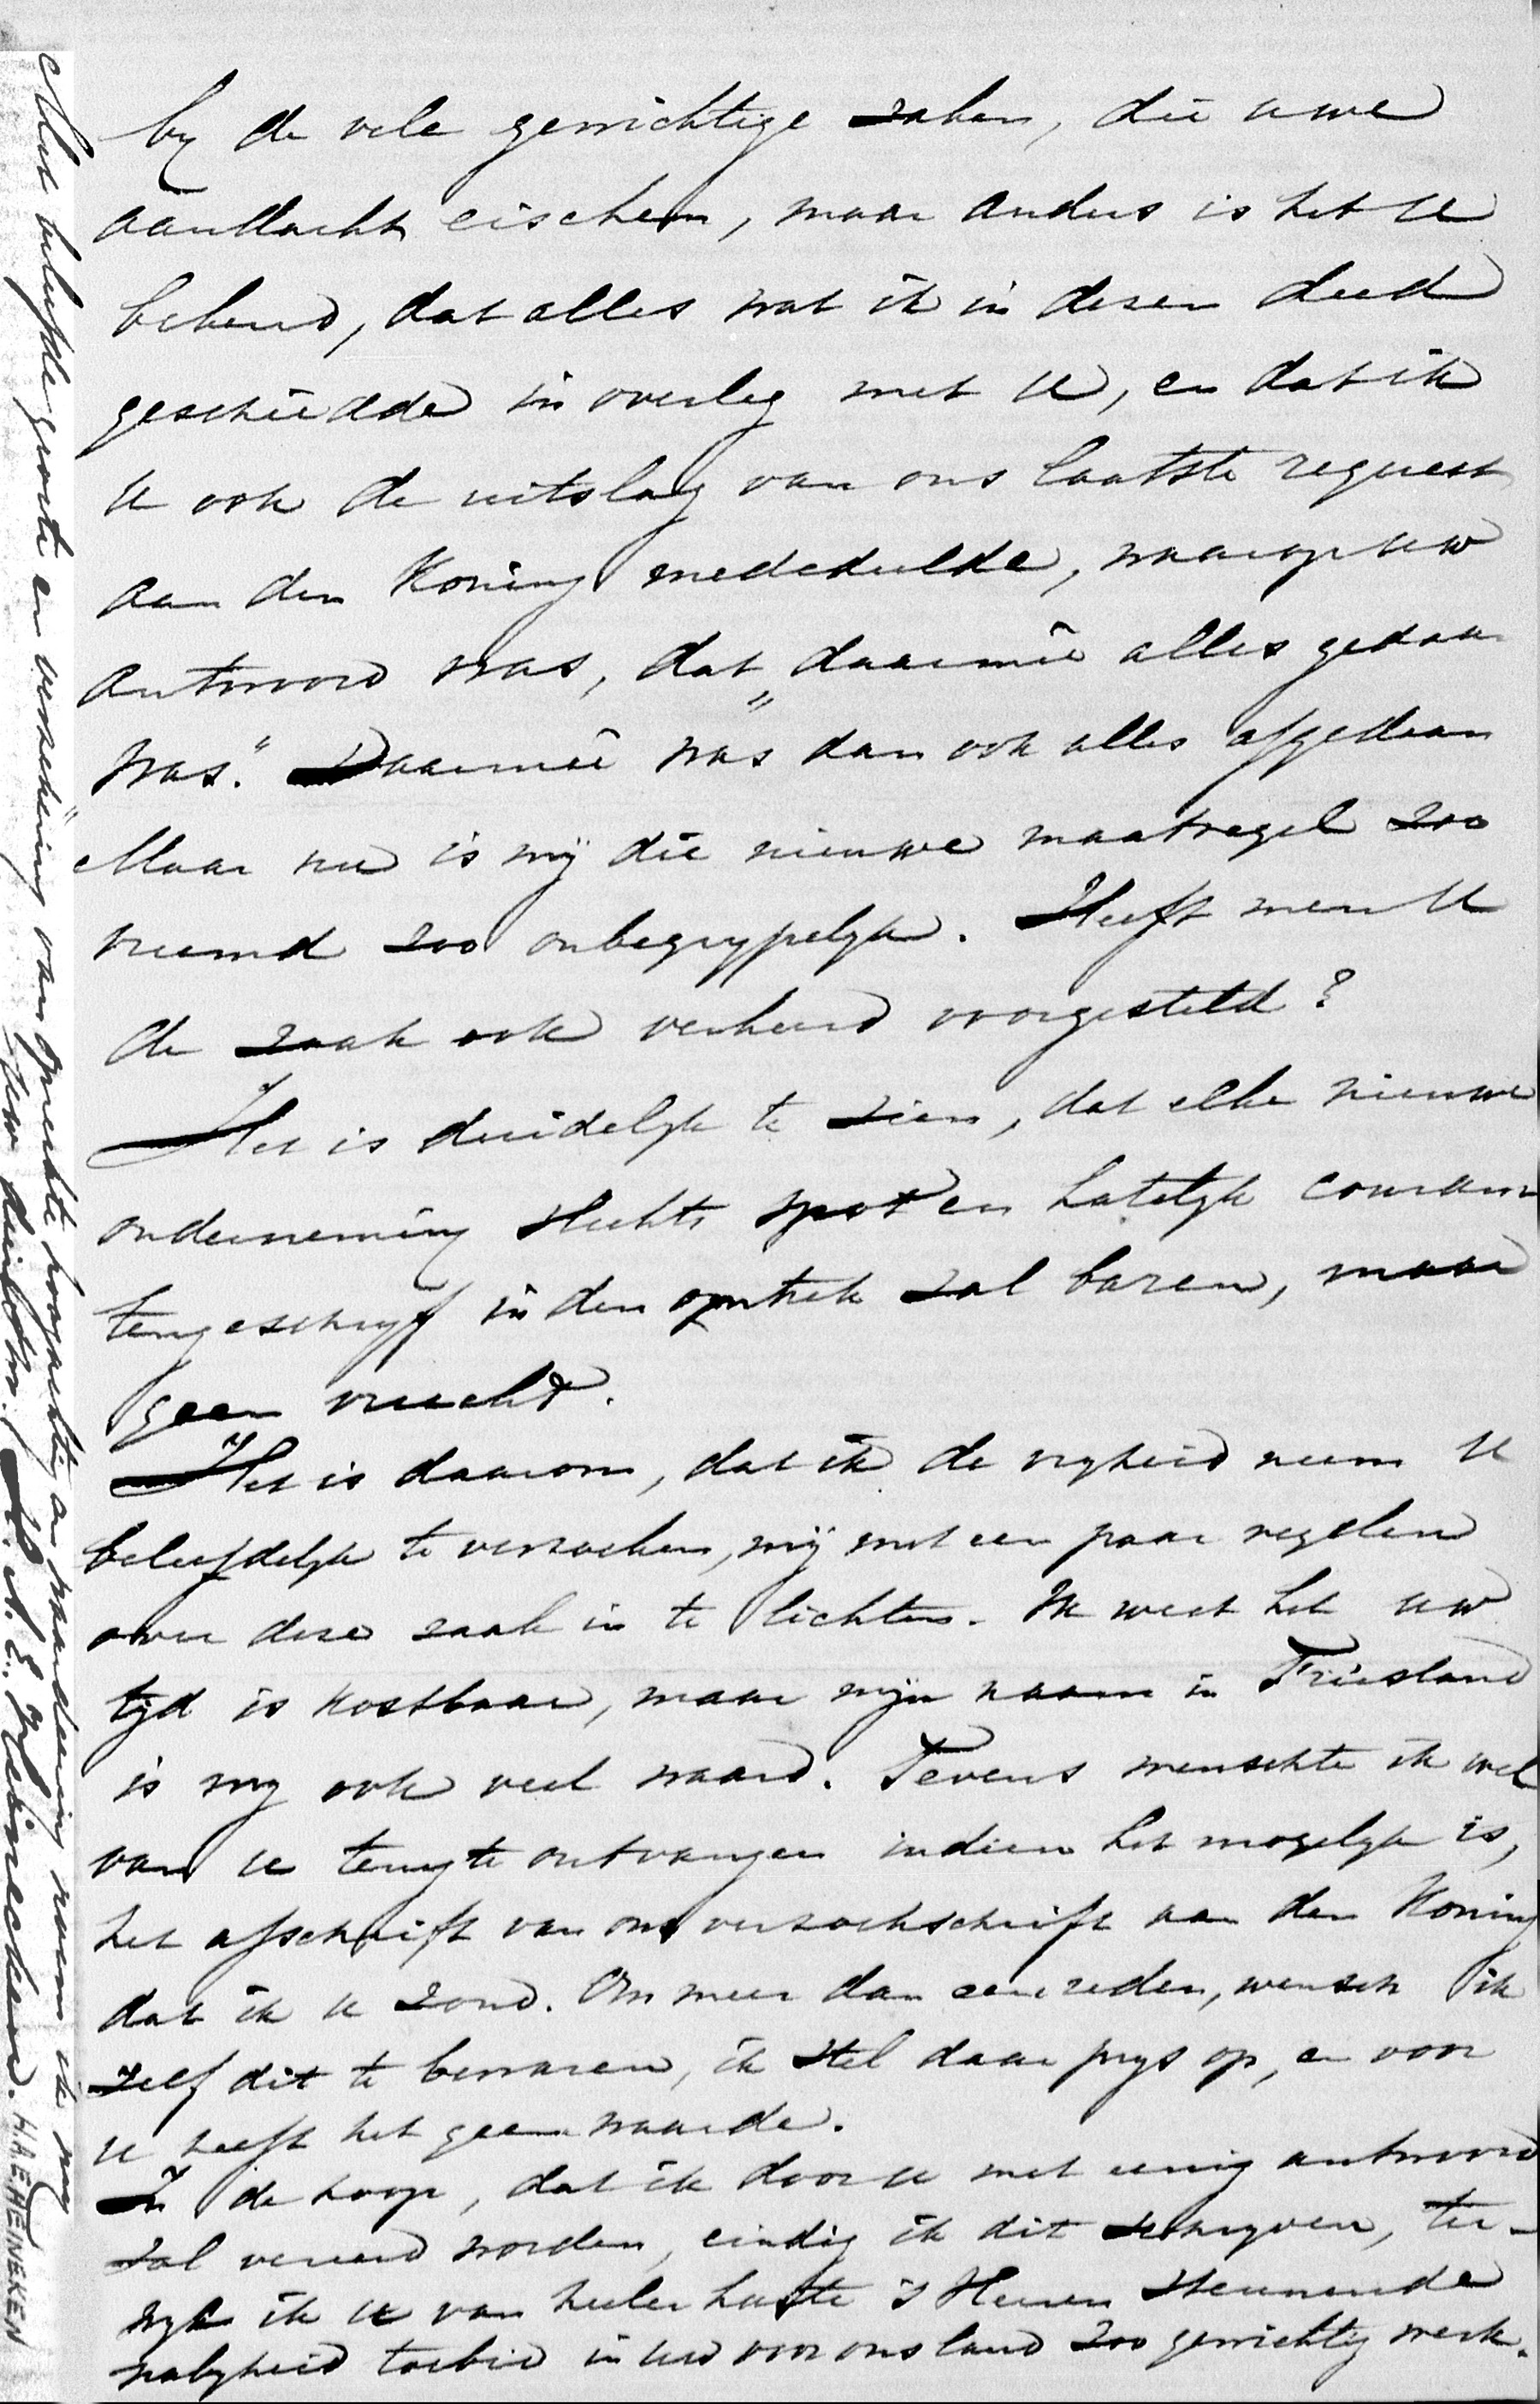 by de vele gewichtige zaken, die uwe
aandacht eischen, maar anders is het U
bekend, dat alles wat ik in dezen deed
geschiedde in overleg met U, en dat ik
U ook de uitslag van ons laatste request
aan den Koning mededeelde, waarop uw
antwoord was, dat „daarmeê alles gedaan
was." Daarmeê was dan ook alles afgedaan
Maar nu is mij die nieuwe maatregel zoo
vreemd zoo onbegrypelyk. Heeft men U
de zaak ook verkeerd voorgesteld?
Het is duidelyk te zien, dat elke nieuwe
onderneming slechts spot en hatelyk couran-
tengeschryf in den omtrek zal baren, maar
geen vrucht.
Het is daarom, dat ik de vryheid neem U
beleefdelyk te verzoeken, mij met een paar regelen
over deze zaak in te lichten. Ik weet het uw
tijd is kostbaar, maar mijn naam in Friesland
is my ook veel waard. Tevens wenschte ik wel
van U terug te ontvangen indien het mogelyk is,
het afschrift van ons verzoekschrift aan den Koning
dat ik U zond. Om meer dan eene reden, wensch ik
zelf dit te bewaren, ik stel daar prys op, en voor
U heeft het geen waarde.
In de hoop, dat ik door U met eenig antwoord
zal vereerd worden, eindig ik dit schryven, ter-
wyl ik U van heeler harte 's Heeren steunende
nabyheid toebid in uw voor ons land zoo gewichtig werk.
Met beleefde groete en verzekering van oprechte hoogachting en waardeering noem ik my
Uw dienstdr.
H. A. E. Heineken.
H.A.E. HEINEKEN